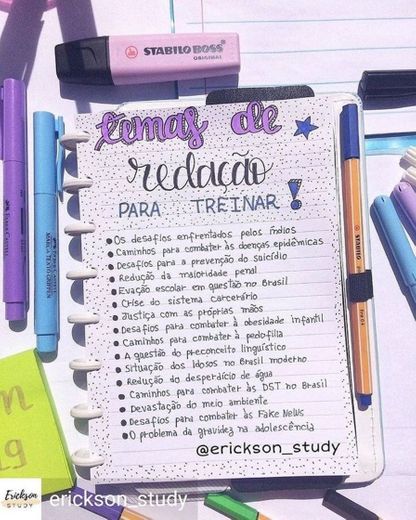 STABILO BOSS
ORIGINAL
temas de
redação
PARA TREINAR!
Os desafios enfrentados pelos índios
Caminhos para combater às doenças epidêmicas
Desafios para a prevenção do suicídio
Redução da maioridade penal
Evação escolar em questão no Brasil
Crise do sistema carcerário
Justiça com as próprias mãos
Desafios para combater à obesidade infantil
Caminhos para combater à pedofilia
A questão do preconceito linguístico
Situação dos Idosos no Brasil moderno
Redução do desperdício de água
Caminhos para combater às DST no Brasil
Devastação do meio ambiente
Desafios para combater às Fake News
O problema da gravidez na adolescência
@erickson_study
Erickson
STUDY
erickson_study